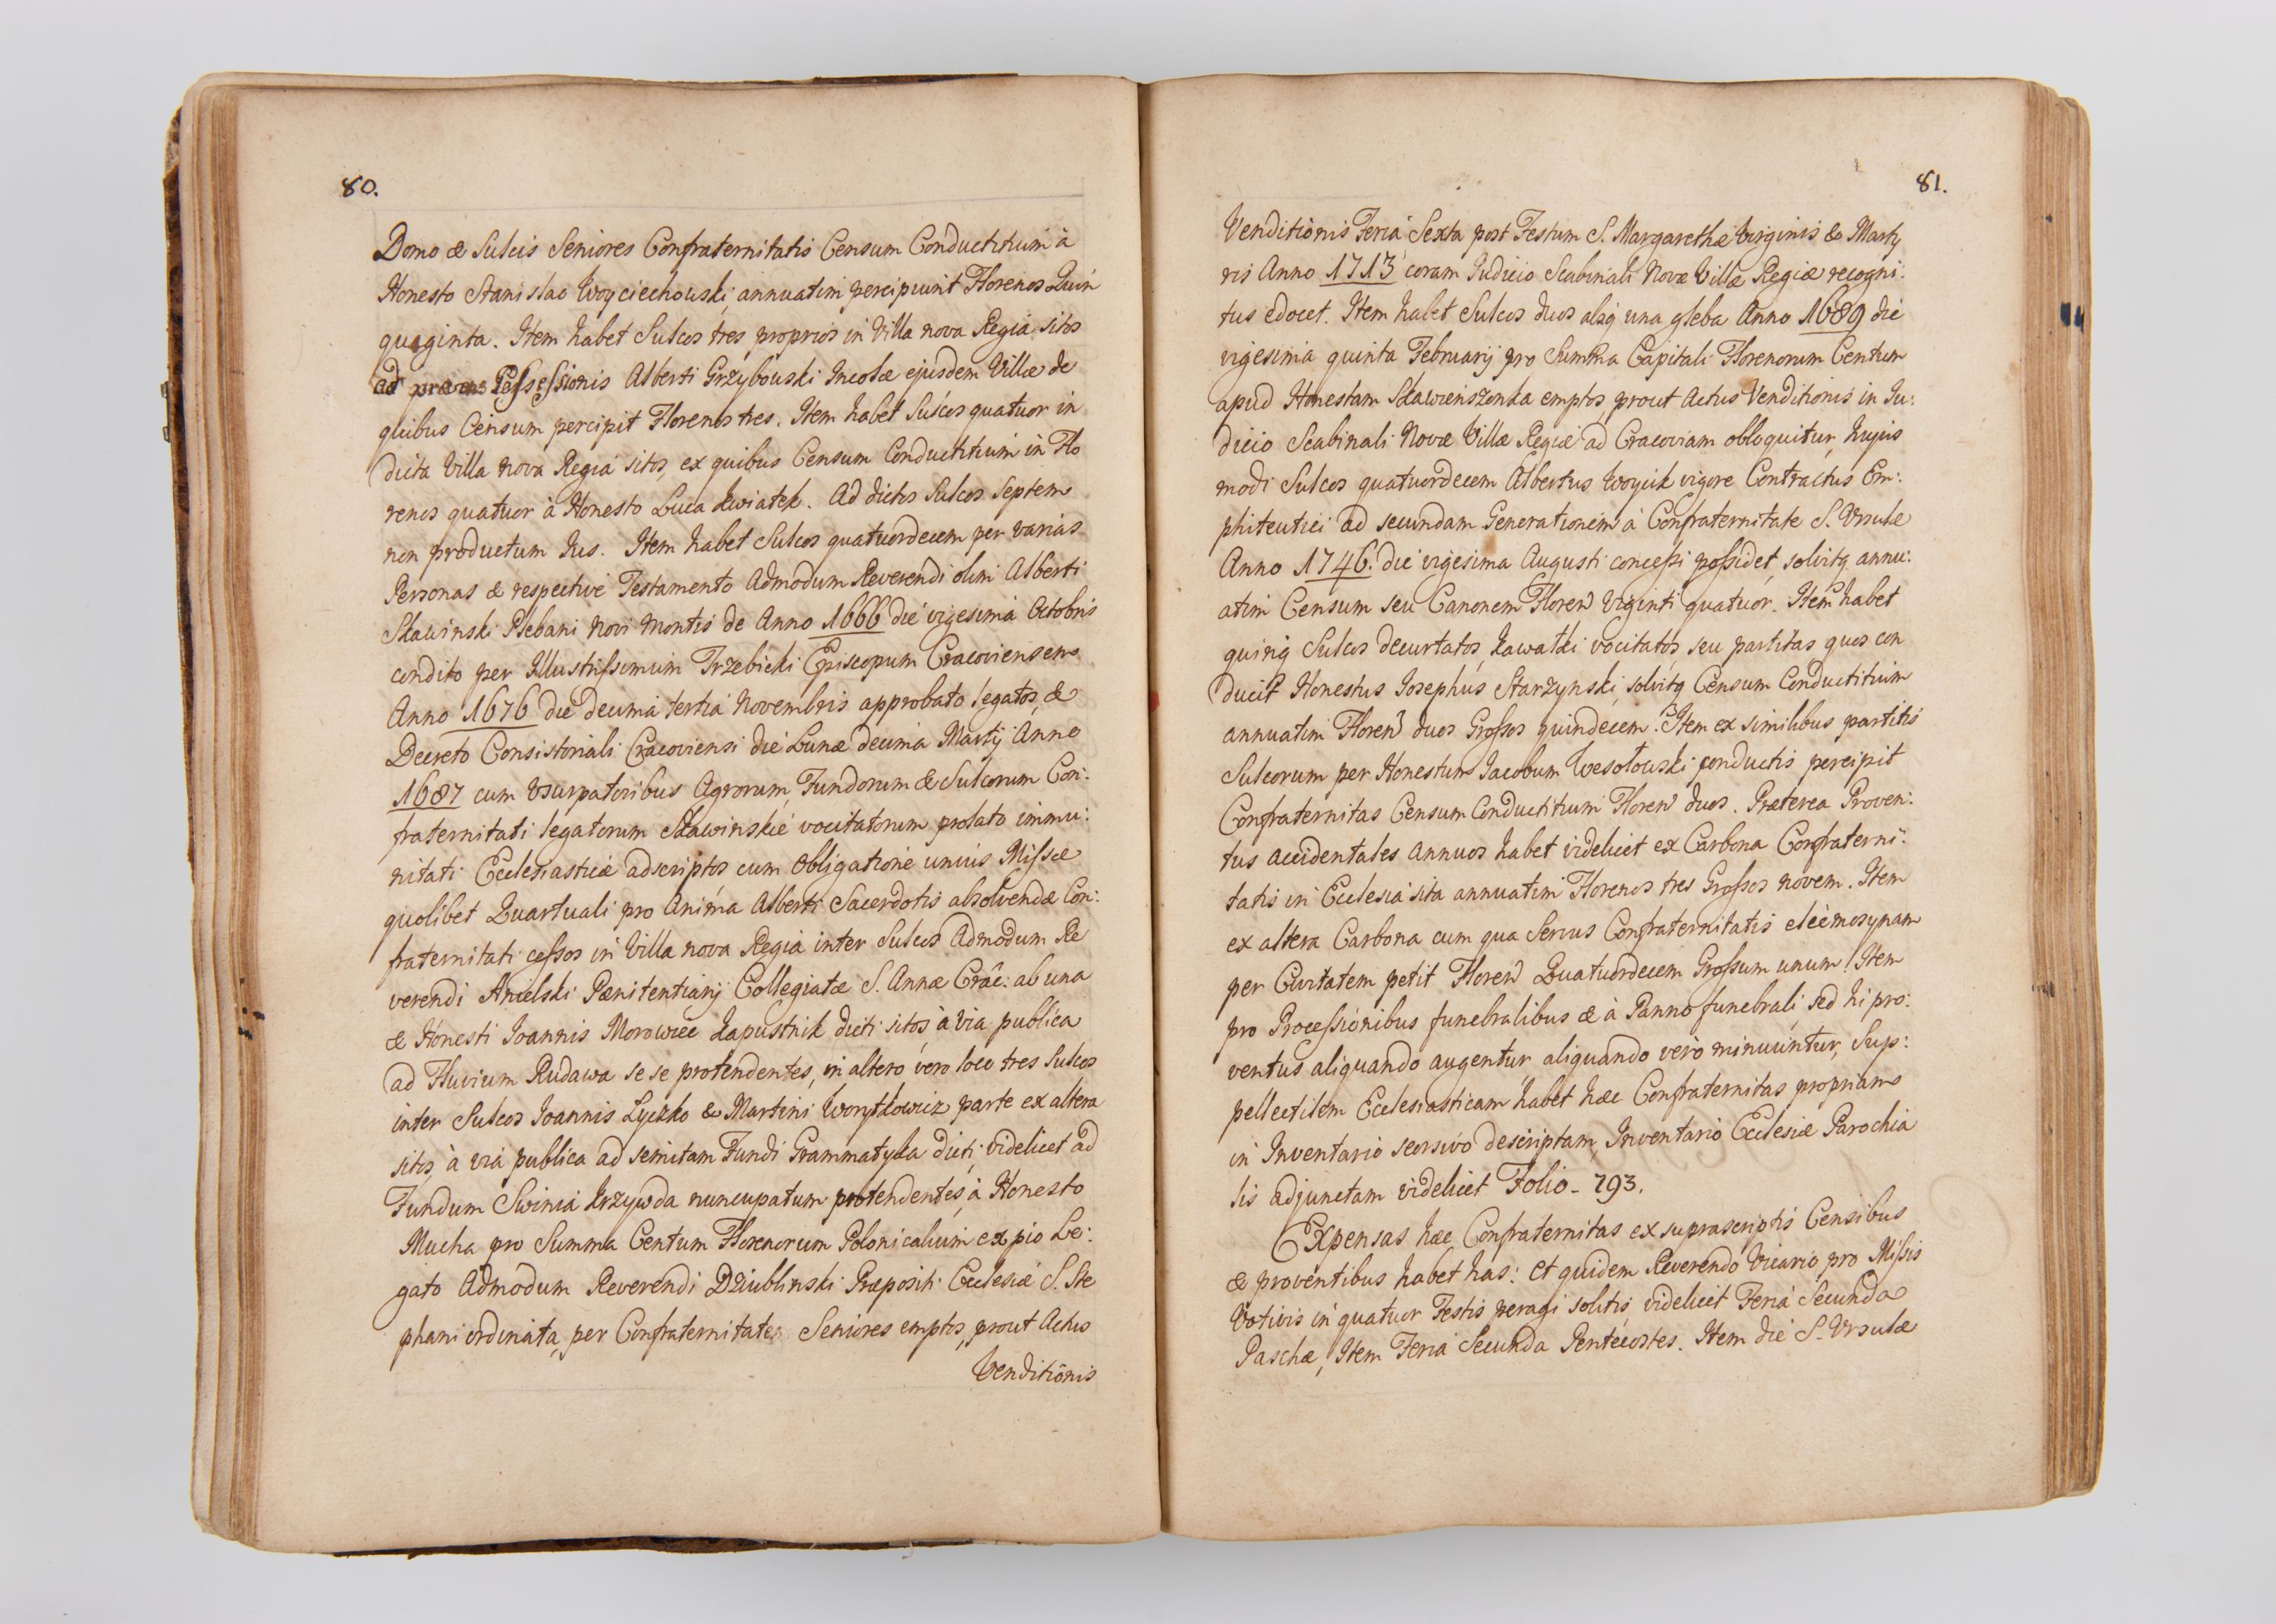 80.
Domo & Sulcis Seniores Confraternitatis Censum Conductitium à
Honesto Stanislao Woyciechowski annuatim percipiunt Florenos Quin
quaginta. Item habet Sulcos tres proprios in Villa nova Regia sitos
ad Possessionis Alberti Grzybowski Incolæ ejusdem Villæ de
quibus Censum percipit Florenos tres. Item habet Sulcos quatuor in
dicta Villa nova Regia sitos, ex quibus Censum Conductitium in Flo
renos quatuor à Honesto Luca Kwiatek. Ad dictos Sulcos Septem
non productum Jus. Item habet Sulcos quatuordecem per varias
Personas & respective Testamento Admodum Reverendi olim Alberti
Sławinski Plebani Novi Montis de Anno 1666 die vigesima Octobris
condito per Illustrissimum Trzebicki Episcopum Cracoviensem
Anno 1676 die decima tertia Novembris approbato legatos, &
Decreto Consistoriali Cracoviensi die Lunæ decima Martij Anno
1687 cum Usurpatoribus Agrorum, Fundorum & Sulcorum Con:
fraternitati legatorum Sławinskie vocitatorum prolato immu:
nitati Ecclesiasticæ adscriptos cum Obligatione unius Missæ
quolibet Quartuali pro Anima Alberti Sacerdotis absolvendæ Con:
fraternitati cessos in Villa nova Regia inter Sulcos Admodum Re
verendi Anielski Pœnitentiarij Collegiatæ S. Annæ Crac: ab una
& Honesti Joannis Morowiec Kapustnik dicti sitos, à via publica
ad Fluvium Rudawa se se protendentes, in altero vero loco tres Sulcos
inter Sulcos Joannis Lyczko & Martini Worytkowicz parte ex altera
sitos, à via publica ad semitam Fundi Grammatyka dicti, videlicet ad
Fundum Swinia Krzywda nuncupatum protendentes, à Honesto
Mucha pro Summa Centum Florenorum Polonicalium ex pio Le:
gato Admodum Reverendi Dziublinski Præpositi Ecclesiæ S. Ste
phani ordinata, per Confraternitatis Seniores emptos, prout Actus
Venditionis
81.
Venditionis Feria Sexta post Festum S. Margarethæ Virginis & Marty
ris Anno 1713 coram Judicio Scabinali Novæ Villæ Regiæ recogni:
tus edocet. Item habet Sulcos duos alsq una gleba Anno 1689 die
vigesima quinta Februarij pro Summa Capitali Florenorum Centum
apud Honestam Sławienszonka emptos, prout Actus Venditionis in Ju:
dicio Scabinali Novæ Villæ Regiæ ad Cracoviam obloquitur, hujus
modi Sulcos quatuordecem Albertus Woycik vigore Contractus Em:
phiteutici ad secundam Generationem à Confraternitate S. Ursulæ
Anno 1746. die vigesima Augusti concessi possidet, solvitq annu:
atim Censum seu Canonem Floren viginti quatuor. Item habet
quinq Sulcos decurtatos, kawałki vocitatos, seu partitas quos con
ducit Honestus Josephus Starzynski, solvitq Censum Conductitium
annuatim Floren duos Grossos quindecem. Item ex similibus partitis
Sulcorum per Honestum Jacobum Wesołowski conductis percipit
Confraternitas Censum Conductitium Floren duos. Præterea Proven:
tus accidentales annuos habet videlicet ex Carbona Confraterni:
tatis in Ecclesia sita annuatim Florenos tres Grossos novem. Item
ex altera Carbona cum qua Servus Confraternitatis eleemosynam
per Civitatem petit Floren Quatuordecem Grossum unum. Item
pro Processionibus funebralibus & à Panno funebrali, sed hi pro:
ventus aliquando augentur, aliquando vero minuuntur, Sup:
pellectilem Ecclesiasticam habet hæc Confraternitas propriam
in Inventario seorsivo descriptam, Inventario Ecclesiæ Parochia
lis adjunctam videlicet Folio - 793.
Expensas hæc Confraternitas ex suprascriptis Censibus
& proventibus habet has: et quidem Reverendo Vicario pro Missis
Votivis in quatuor Festis peragi solitis, videlicet Feria Secunda
Paschæ, Item Feria Secunda Pentecostes. Item die S. Ursulæ